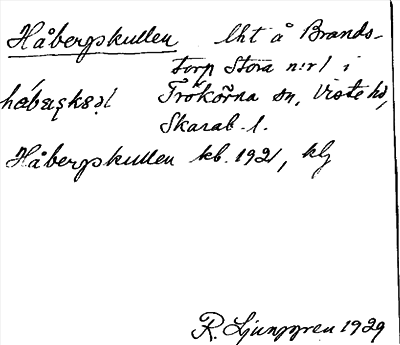 Håbergskullen lht å Brands-
torp Stora n:r 1 i
Trökörna sn, Viste hd,
Skarab. l.
Håbergskullen kb. 1921, klg
R. Ljunggren 1929